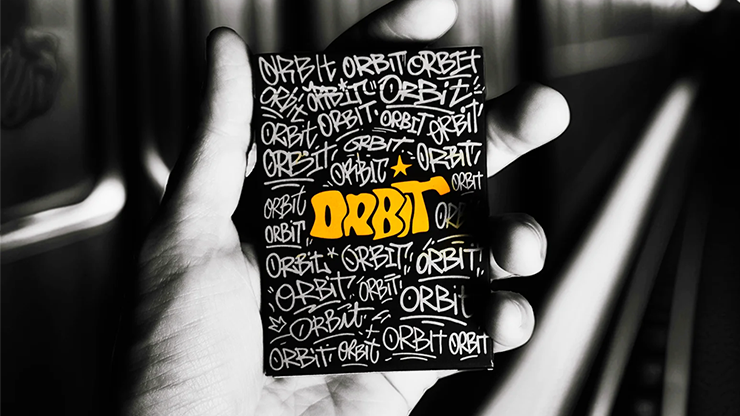 ORBIT ORBIT ORBIT
ORBIT ORBIT ORBiT
ORBiT ORBIT ORBIT ORBIT
ORBIT ORBIT ORBIT
ORBIT ORBIT
ORBIT ORBIT
ORBIT
ORBIT ORBIT ORBIT
ORBIT ORBIT ORBIT
ORBIT ORBIT
ORBIT ORBIT ORBIT ORBIT